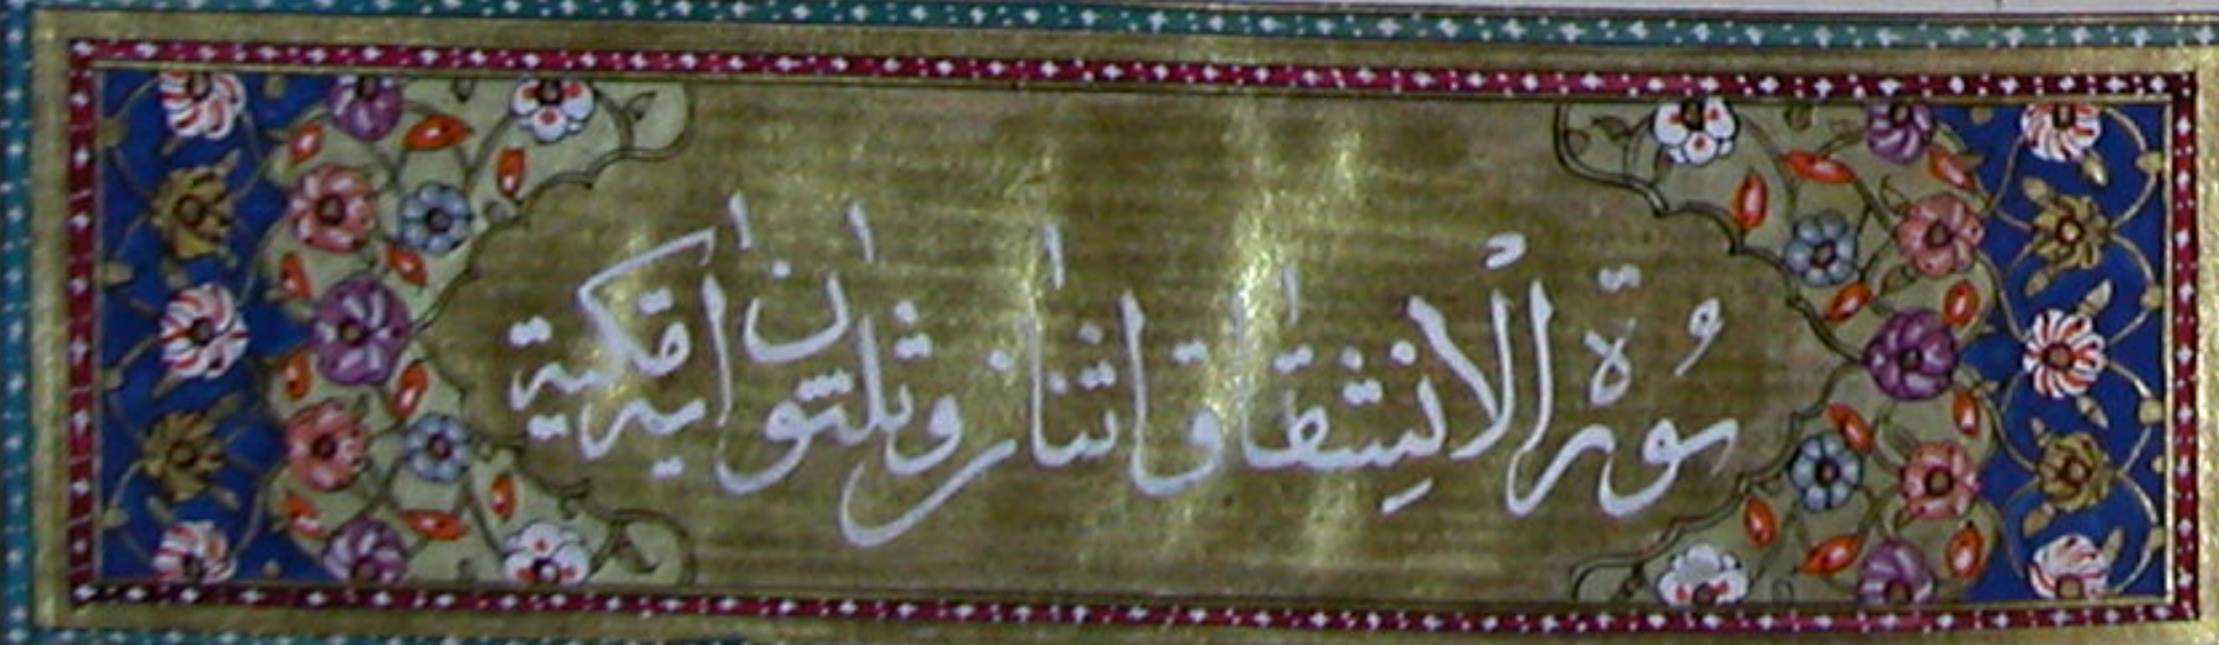 سُورَةّ الْاُنشِقاق اثنان وثلثون ايه مكية